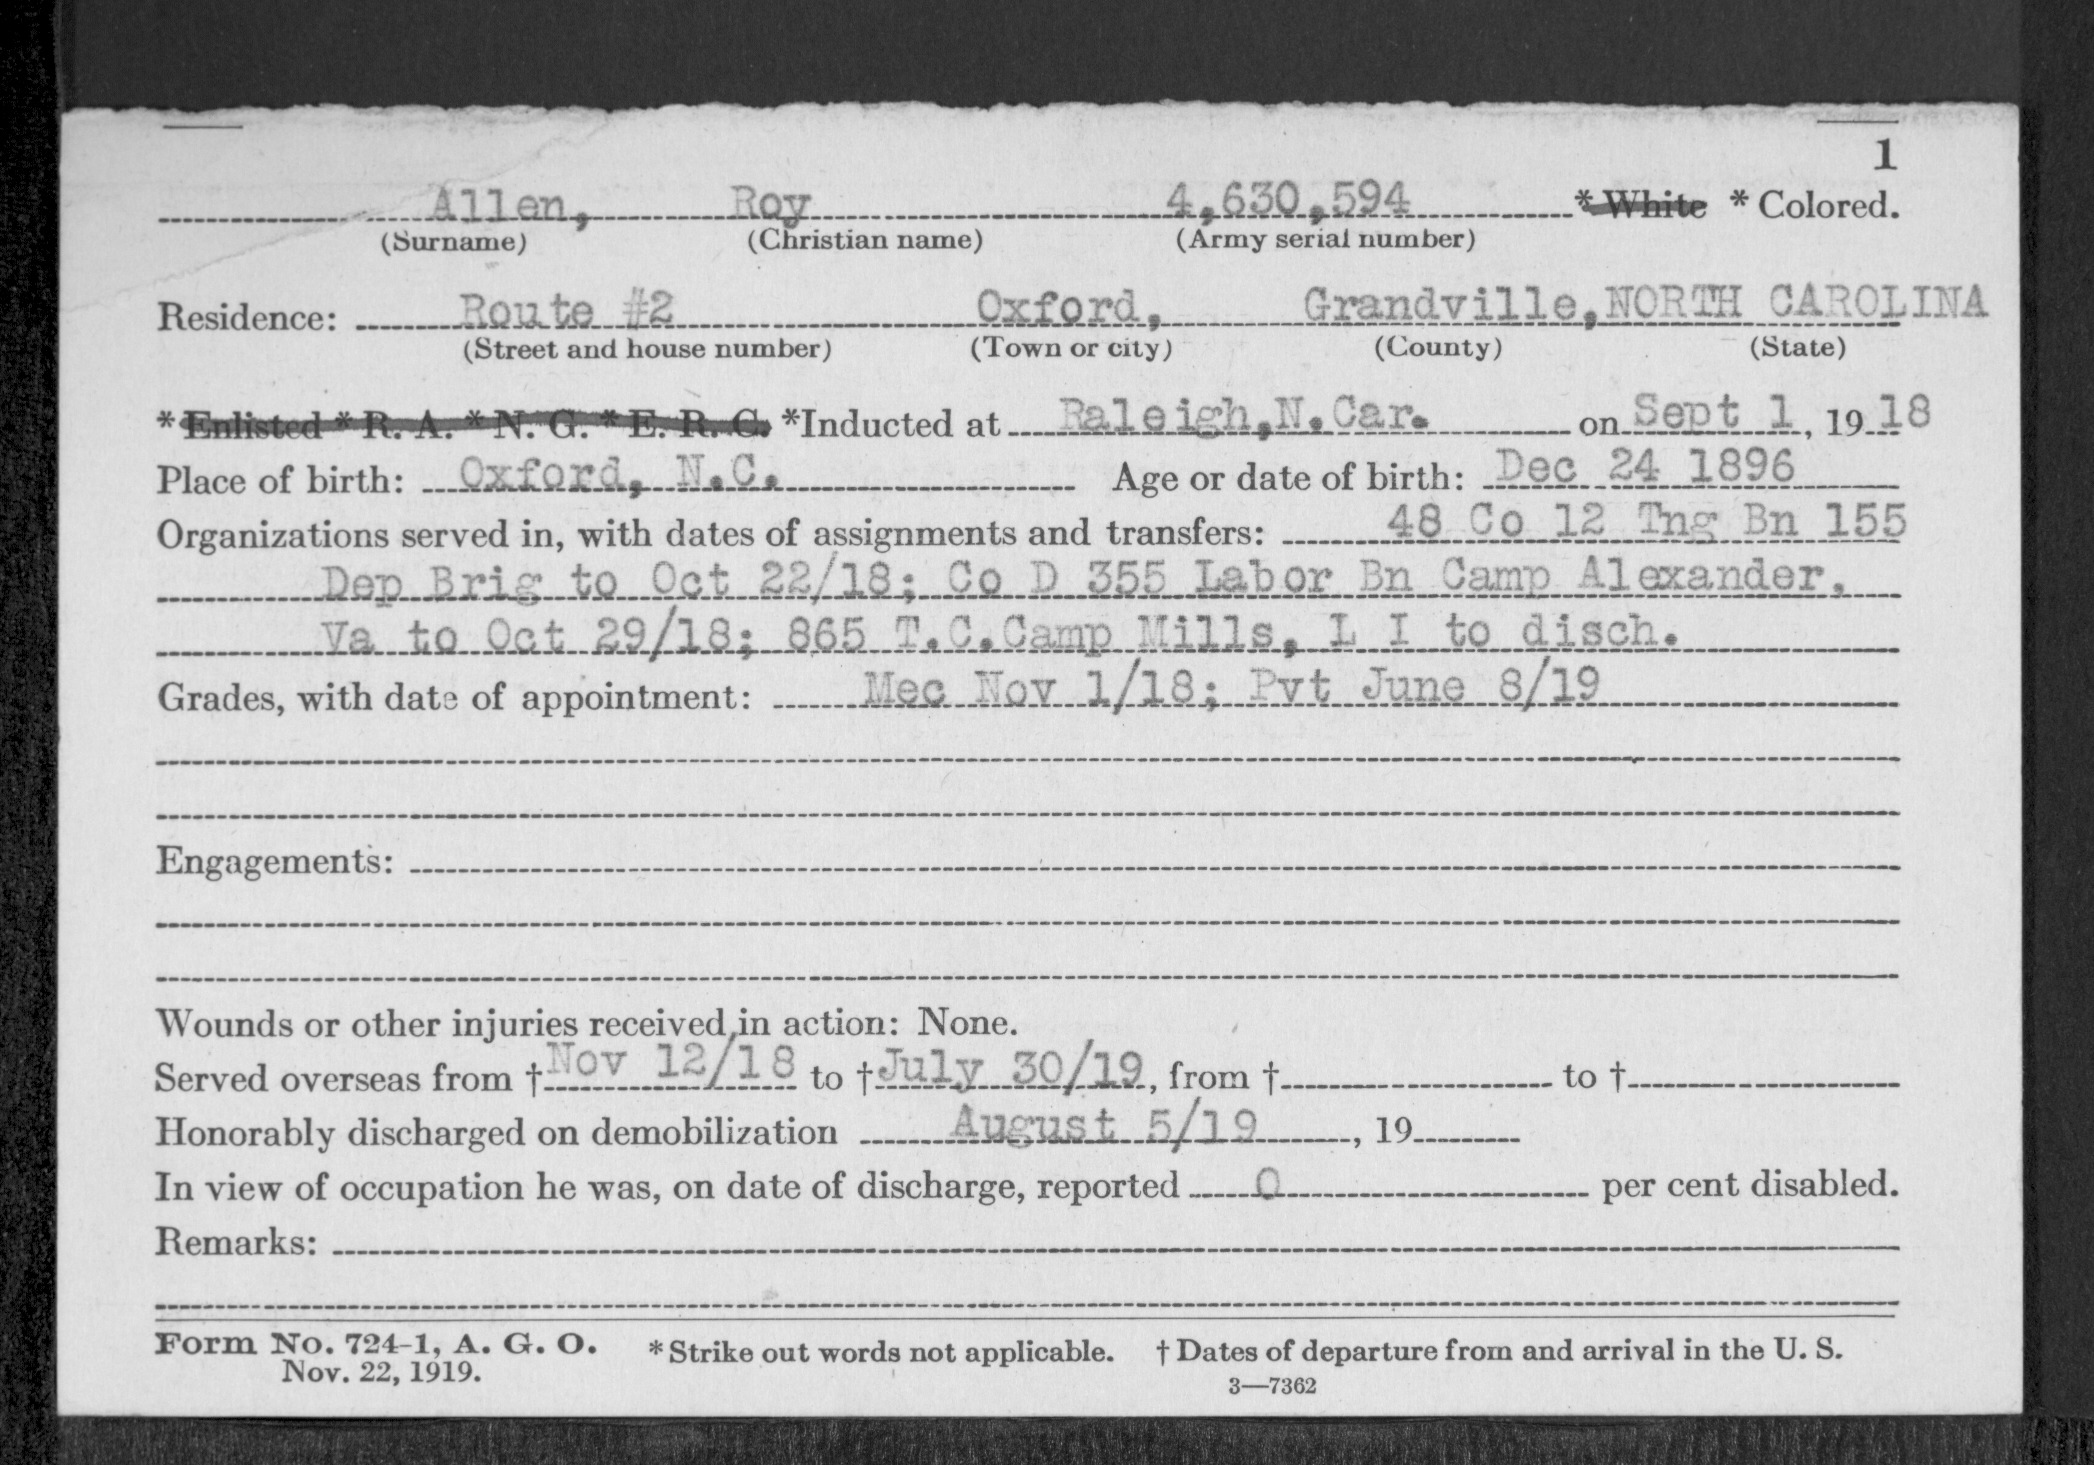 1
Allen, Roy 4,630,594 * White * Colored.
(Surname) (Christian name) (Army serial number)
Residence: Route #2 Oxford, Grandville, NORTH CAROLINA
(Street and house number) (Town or city) (County) (State)
* Enlisted * R. A. * N. G. * E. R. C. *Inducted at Raleigh,N.Car. on Sept 1, 1918
Place of birth: Oxford, N.C. Age or date of birth: Dec 24 1896
Organizations served in, with dates of assignments and transfers: 48 Co 12 Tng Bn 155
Dep Brig to Oct 22/18; Co D 355 Labor Bn Camp Alexander,
Va to Oct 29/18; 865 T.C.Camp Mills, L I to disch.
Grades, with date of appointment: Mec Nov 1/18; Pvt June 8/19
Engagements:
Wounds or other injuries received in action: None.
Served overseas from † Nov 12/18 to † July 30/19, from † to †
Honorably discharged on demobilization August 5/19, 19
In view of occupation he was, on date of discharge, reported 0 per cent disabled.
Remarks:
Form No. 724-1, A. G. O. * Strike out words not applicable. † Dates of departure from and arrival in the U. S.
Nov. 22, 1919.
3—7362